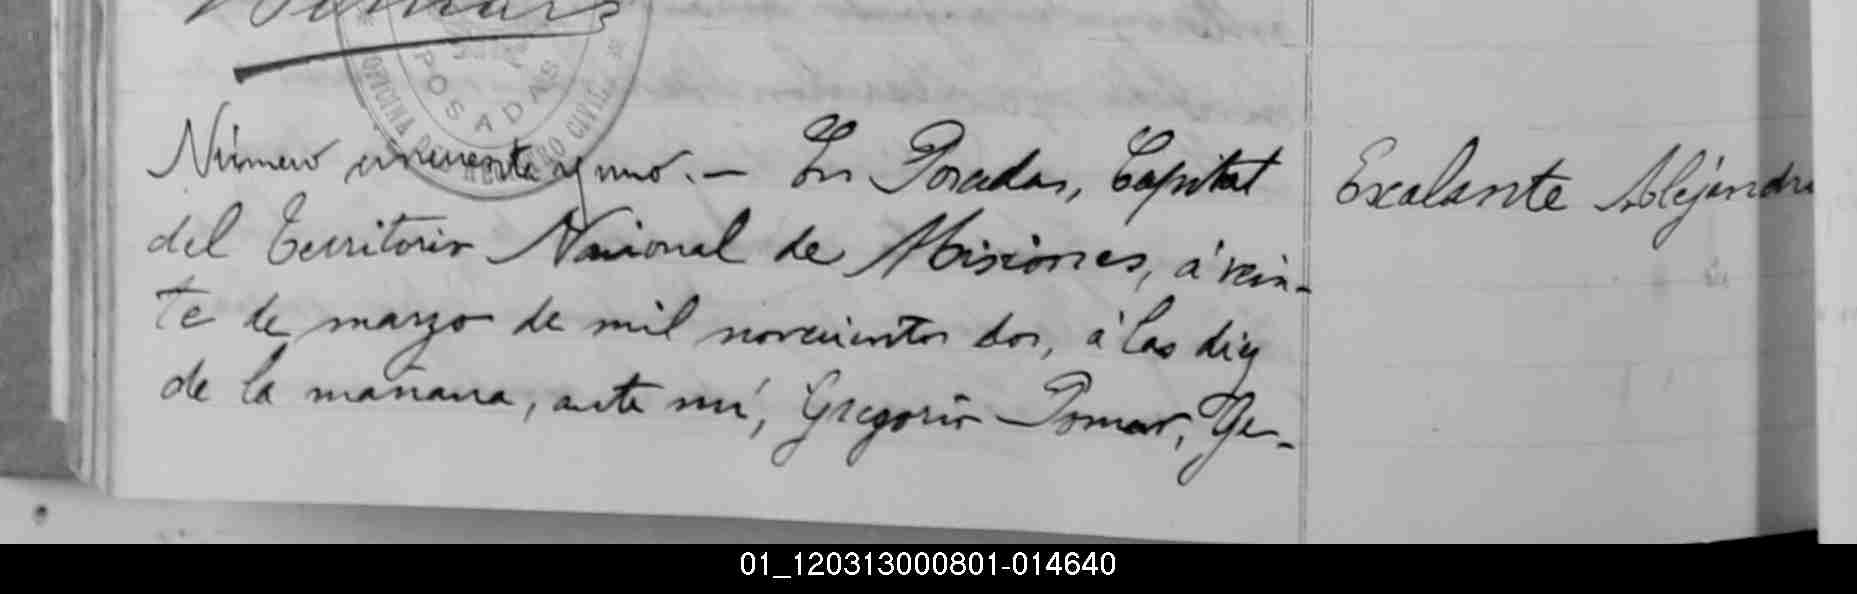 POSADAS
OFICINA DEL REGISTRO CIVIL
Número cincuenta y uno. — En Posadas, Capital
del Territorio Nacional de Misiones, á vein-
te de marzo de mil novecientos dos, á las diez
de la mañana, ante mí, Gregorio Pomar, Ge-
Escalante Alejandro
01_120313000801-014640